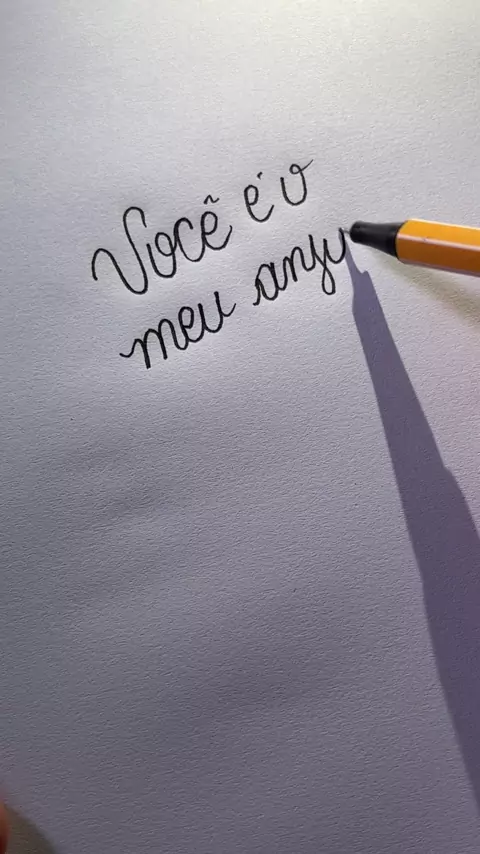 Você é o
meu anju